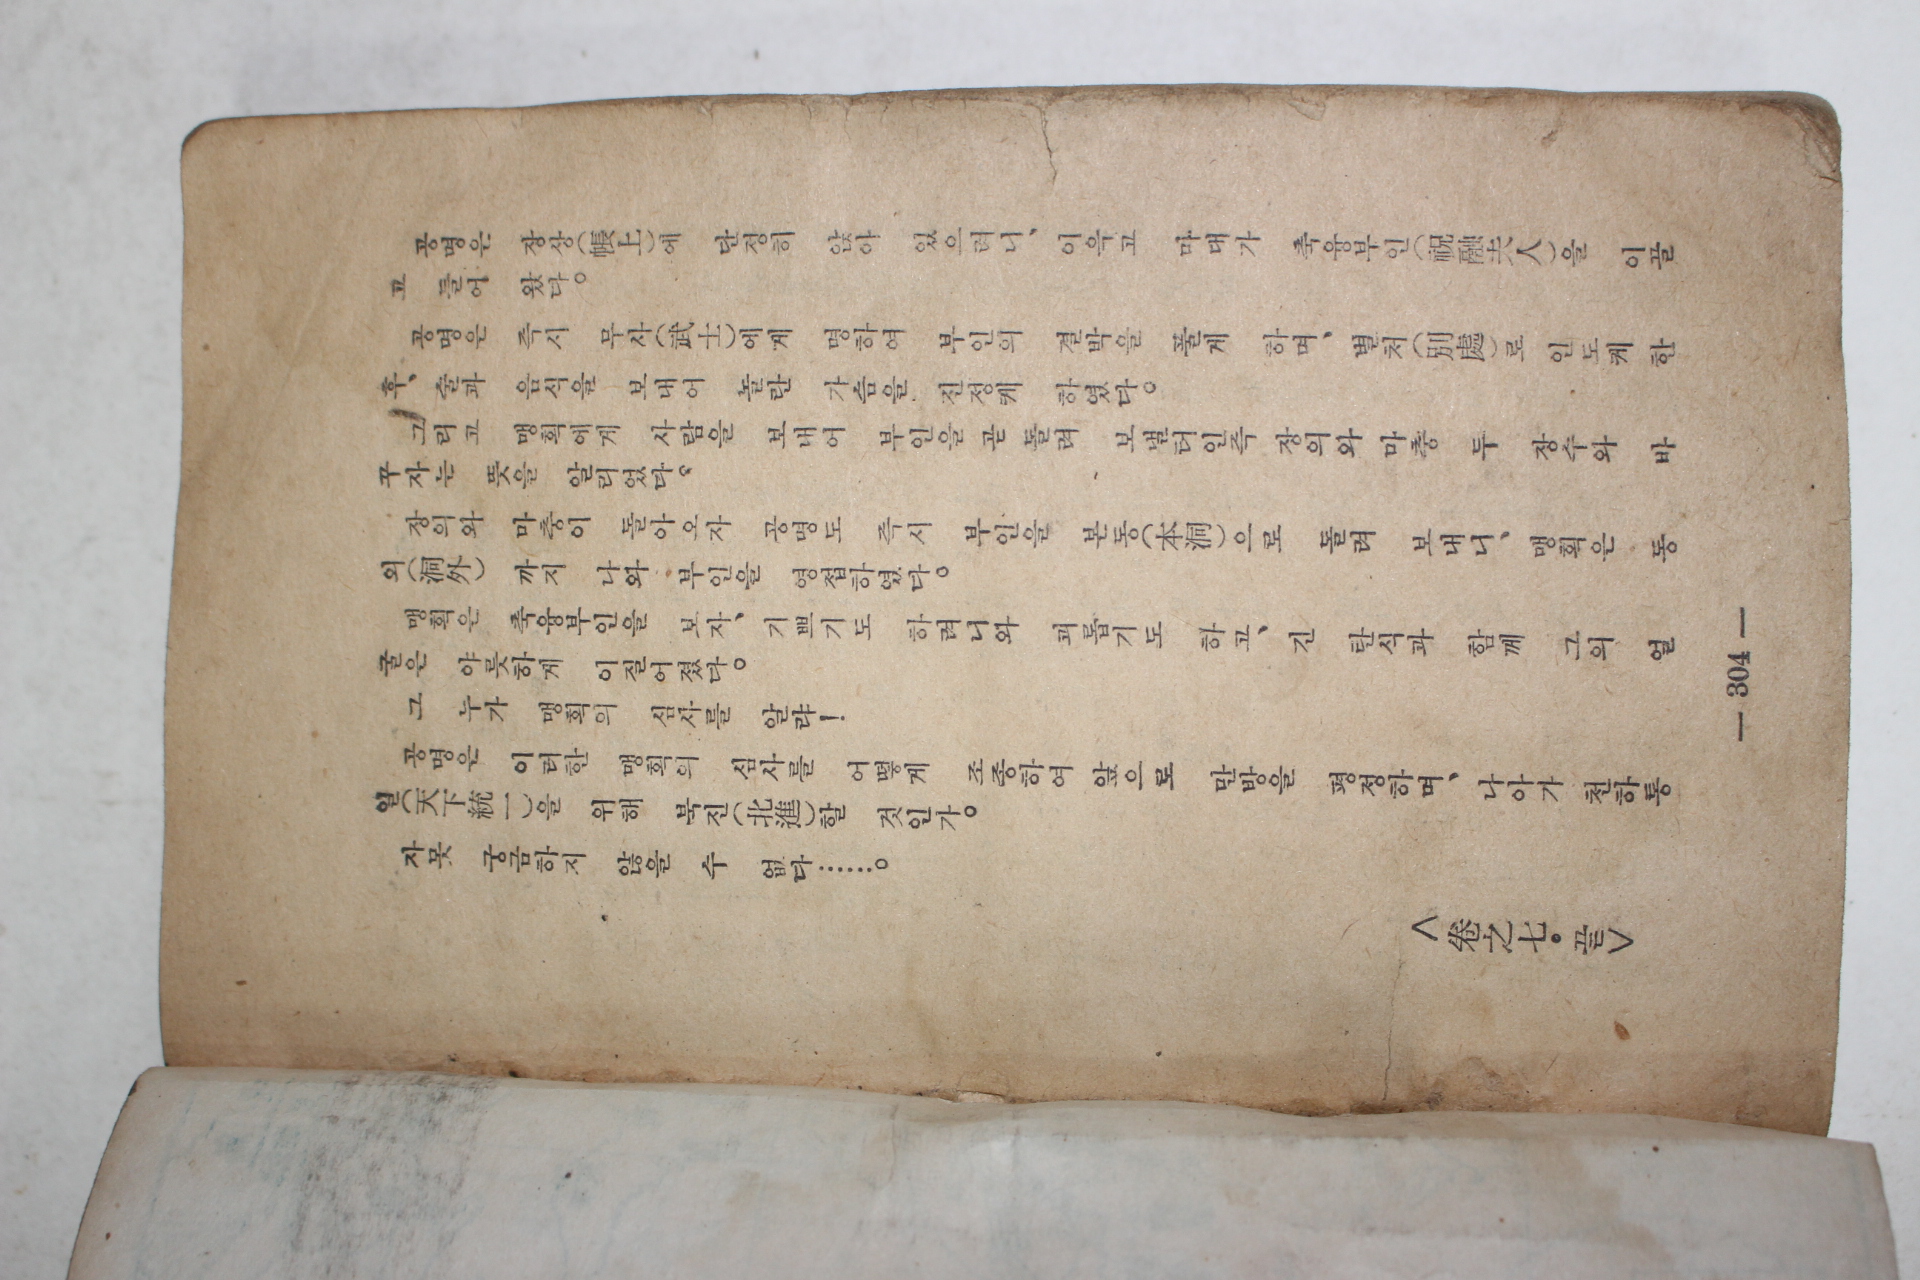 공명은 장상(帳上)에 단정히 앉아 있으려니、이윽고 마대가 축융부인(祝融夫人)을 이끌
고 들어 왔다。
공명은 즉시 무사(武士)에게 명하여 부인의 결박을 풀게 하며、별처(別處)로 인도케 한
후、술과 음식을 보내어 놀란 가슴을 진정케 하였다。
그리고 맹획에게 사람을 보내어 부인을 곧 돌려 보낼터인즉 장의와 마충 두 장수와 바
꾸자는 뜻을 알리었다。
장의와 마충이 돌아오자 공명도 즉시 부인을 본동(本洞)으로 돌려 보내니、맹획은 동
외(洞外)까지 나와 부인을 영접하였다。
맹획은 축융부인을 보자、기쁘기도 하려니와 괴롭기도 하고、긴 탄식과 함께 그의 얼
굴은 야릇하게 이질어졌다。
그 누가 맹획의 심사를 알랴!
공명은 이러한 맹획의 심사를 어떻게 조종하여 앞으로 만방을 평정하며、나아가 천하통
일(天下統一)을 위해 북진(北進)할 것인가。
자못 궁금하지 않을 수 없다……。
<卷之七。끝>
— 304 —